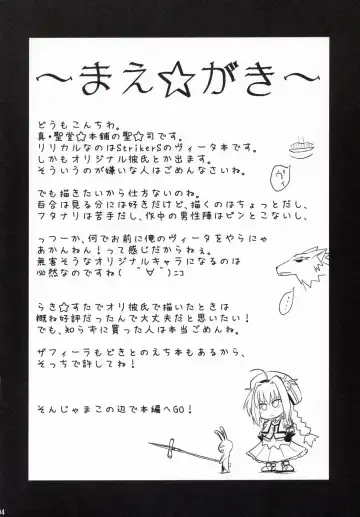 ～まえ☆がき～
どうもこんちわ。
真・聖堂☆本鋪の聖☆司です。
リリカルなのはStrikerSのヴィータ本です。
しかもオリジナル彼氏とか出ます。
そういうのが嫌いな人はごめんなさいね。
でも描きたいから仕方ないのね。
百合は見る分には好きだけど、描くのはちょっとだし、
フタナリは苦手だし、作中の男性陣はピンとこないし、
っつーか、何でお前に俺のヴィータをやらにゃ
あかんねん！って感じだからねぇ。
無害そうなオリジナルキャラになるのは
必然なのですね(　ﾟ∀ﾟ)ﾆｺ
らき☆すたでオリ彼氏で描いたときは
概ね好評だったんで大丈夫だと思いたい！
でも、知らずに買った人は本当ごめんね。
ザフィーラもどきとのえち本もあるから、
そっちで許してね！
そんじゃまこの辺で本編へGO！
ヴィ
…
04